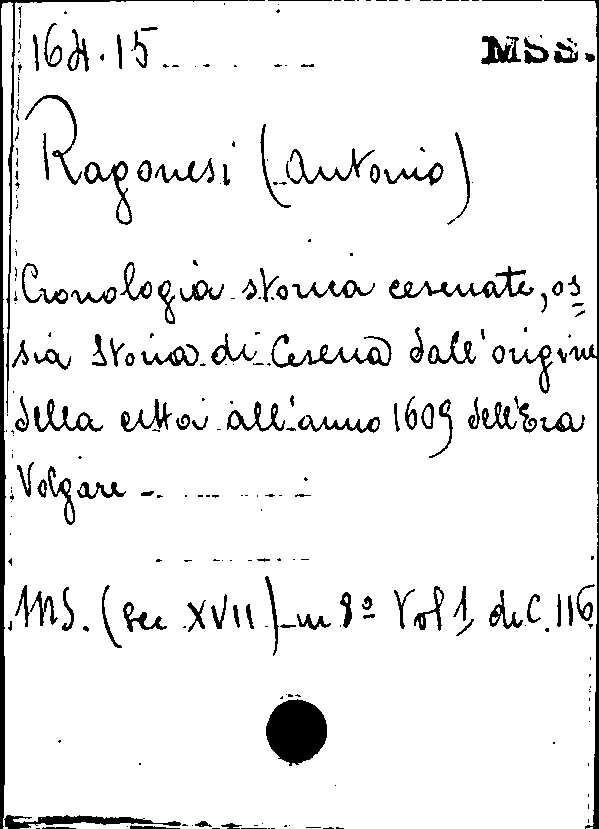 164.15 MSS.
Ragonesi (Antonio)
Cronologia storica cesenate, os=
sia Storia di Cesena dall'origine
della città all'anno 1609 dell'Era
Volgare -
MS. (Sec XVII) in 8º Vol 1, di C. 116